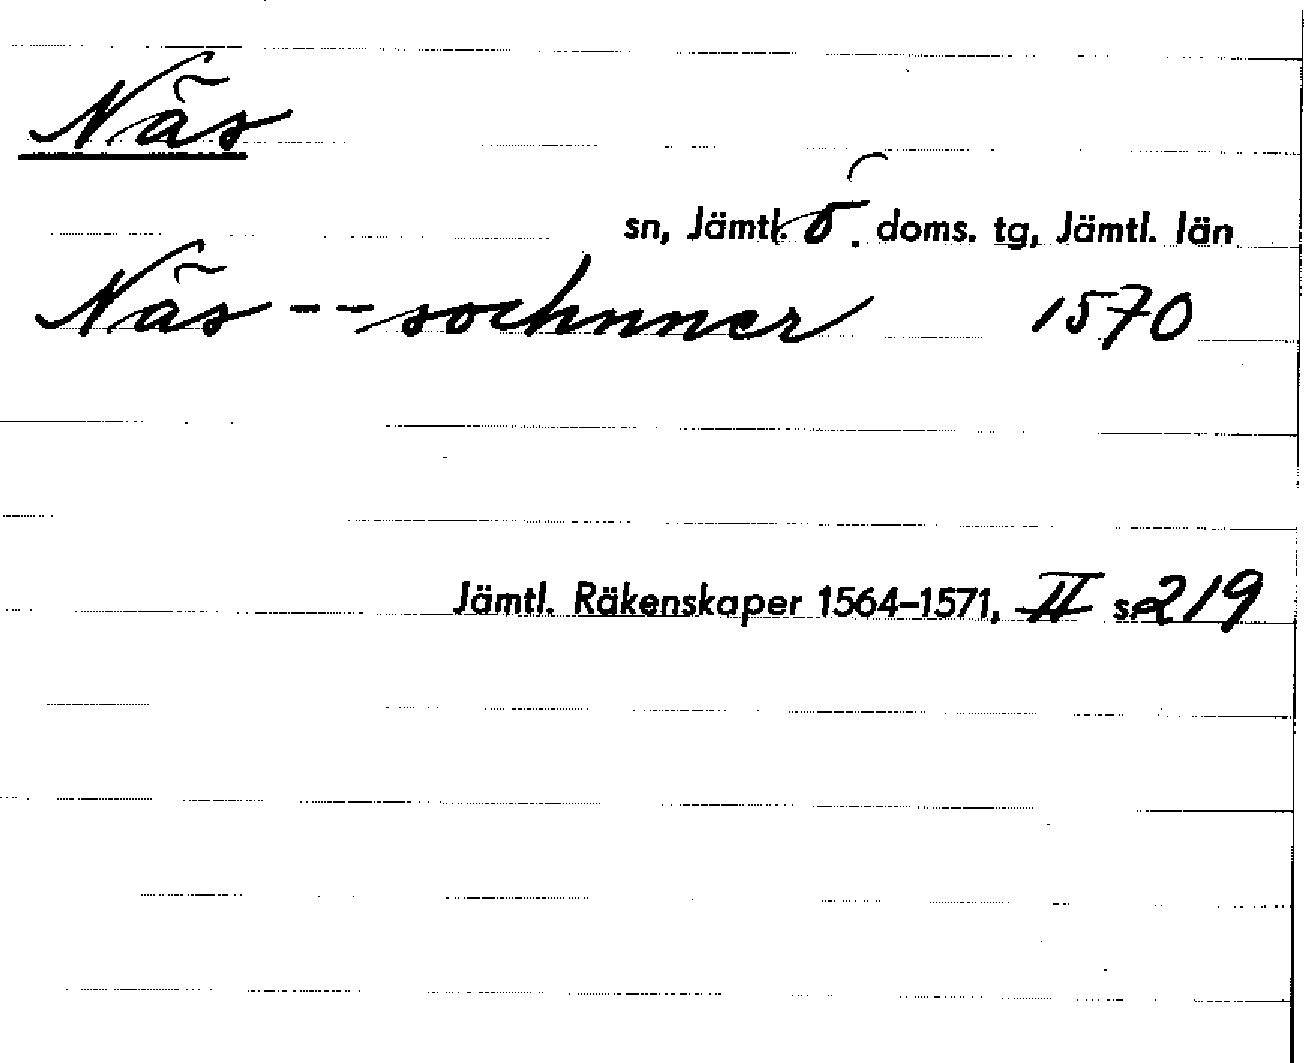 Näs
sn, Jämtl. ö. doms. tg, Jämtl. län
Näs -- sochnner 1570
Jämtl. Räkenskaper 1564-1571, II s. 219